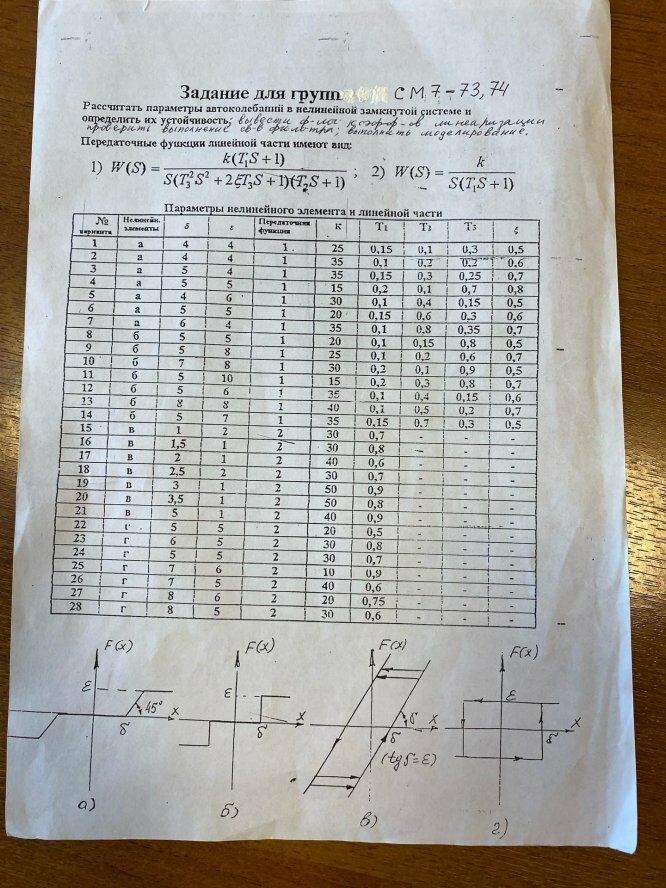 Задание для групп СМ7-73,74
Рассчитать параметры автоколебаний в нелинейной замкнутой системе и
определить их устойчивость; вывести ф-лы коэфф-ов линеаризации
проверить выполнение св-в фильтра; выполнить моделирование.
Передаточные функции линейной части имеют вид:
1) W(S) = k(T₁S + 1) / S(T₃²S² + 2ξT₃S + 1)(T₂S + 1) ; 2) W(S) = k / S(T₁S + 1)
Параметры нелинейного элемента и линейной части
№ варианта Нелинейн. элементы δ ε Передаточная функция К T₁ T₂ T₃ ξ
1 а 4 4 1 25 0,15 0,1 0,3 0,5
2 а 4 4 1 35 0,1 0,2 0,2 0,6
3 а 5 4 1 35 0,15 0,3 0,25 0,7
4 а 5 5 1 15 0,2 0,1 0,7 0,8
5 а 4 6 1 30 0,1 0,4 0,15 0,5
6 а 5 5 1 20 0,15 0,6 0,3 0,6
7 а 6 4 1 35 0,1 0,8 0,35 0,7
8 б 5 5 1 20 0,1 0,15 0,8 0,5
9 б 5 8 1 25 0,1 0,2 0,6 0,7
10 б 7 8 1 30 0,2 0,1 0,9 0,5
11 б 5 10 1 15 0,2 0,3 0,8 0,7
12 б 5 6 1 35 0,1 0,4 0,15 0,6
13 б 8 8 1 40 0,1 0,5 0,2 0,7
14 б 5 7 1 35 0,15 0,7 0,3 0,5
15 в 1 2 2 30 0,7 - - -
16 в 1,5 1 2 30 0,8 - - -
17 в 2 1 2 40 0,6 - - -
18 в 2,5 2 2 30 0,7 - - -
19 в 3 1 2 50 0,9 - - -
20 в 3,5 1 2 50 0,8 - - -
21 в 5 1 2 40 0,9 - - -
22 г 5 5 2 20 0,5 - - -
23 г 6 5 2 30 0,8 - - -
24 г 5 5 2 30 0,7 - - -
25 г 7 6 2 10 0,9 - - -
26 г 7 5 2 40 0,6 - - -
27 г 8 6 2 20 0,75 - - -
28 г 8 5 2 30 0,6 - - -
F(x) F(x) F(x) F(x)
ε ε ε
45° x x x x
δ δ δ δ
(tgδ=ε)
а) б) в) г)